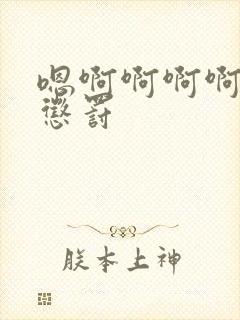 嗯啊啊啊啊
惩罚
朕本上神